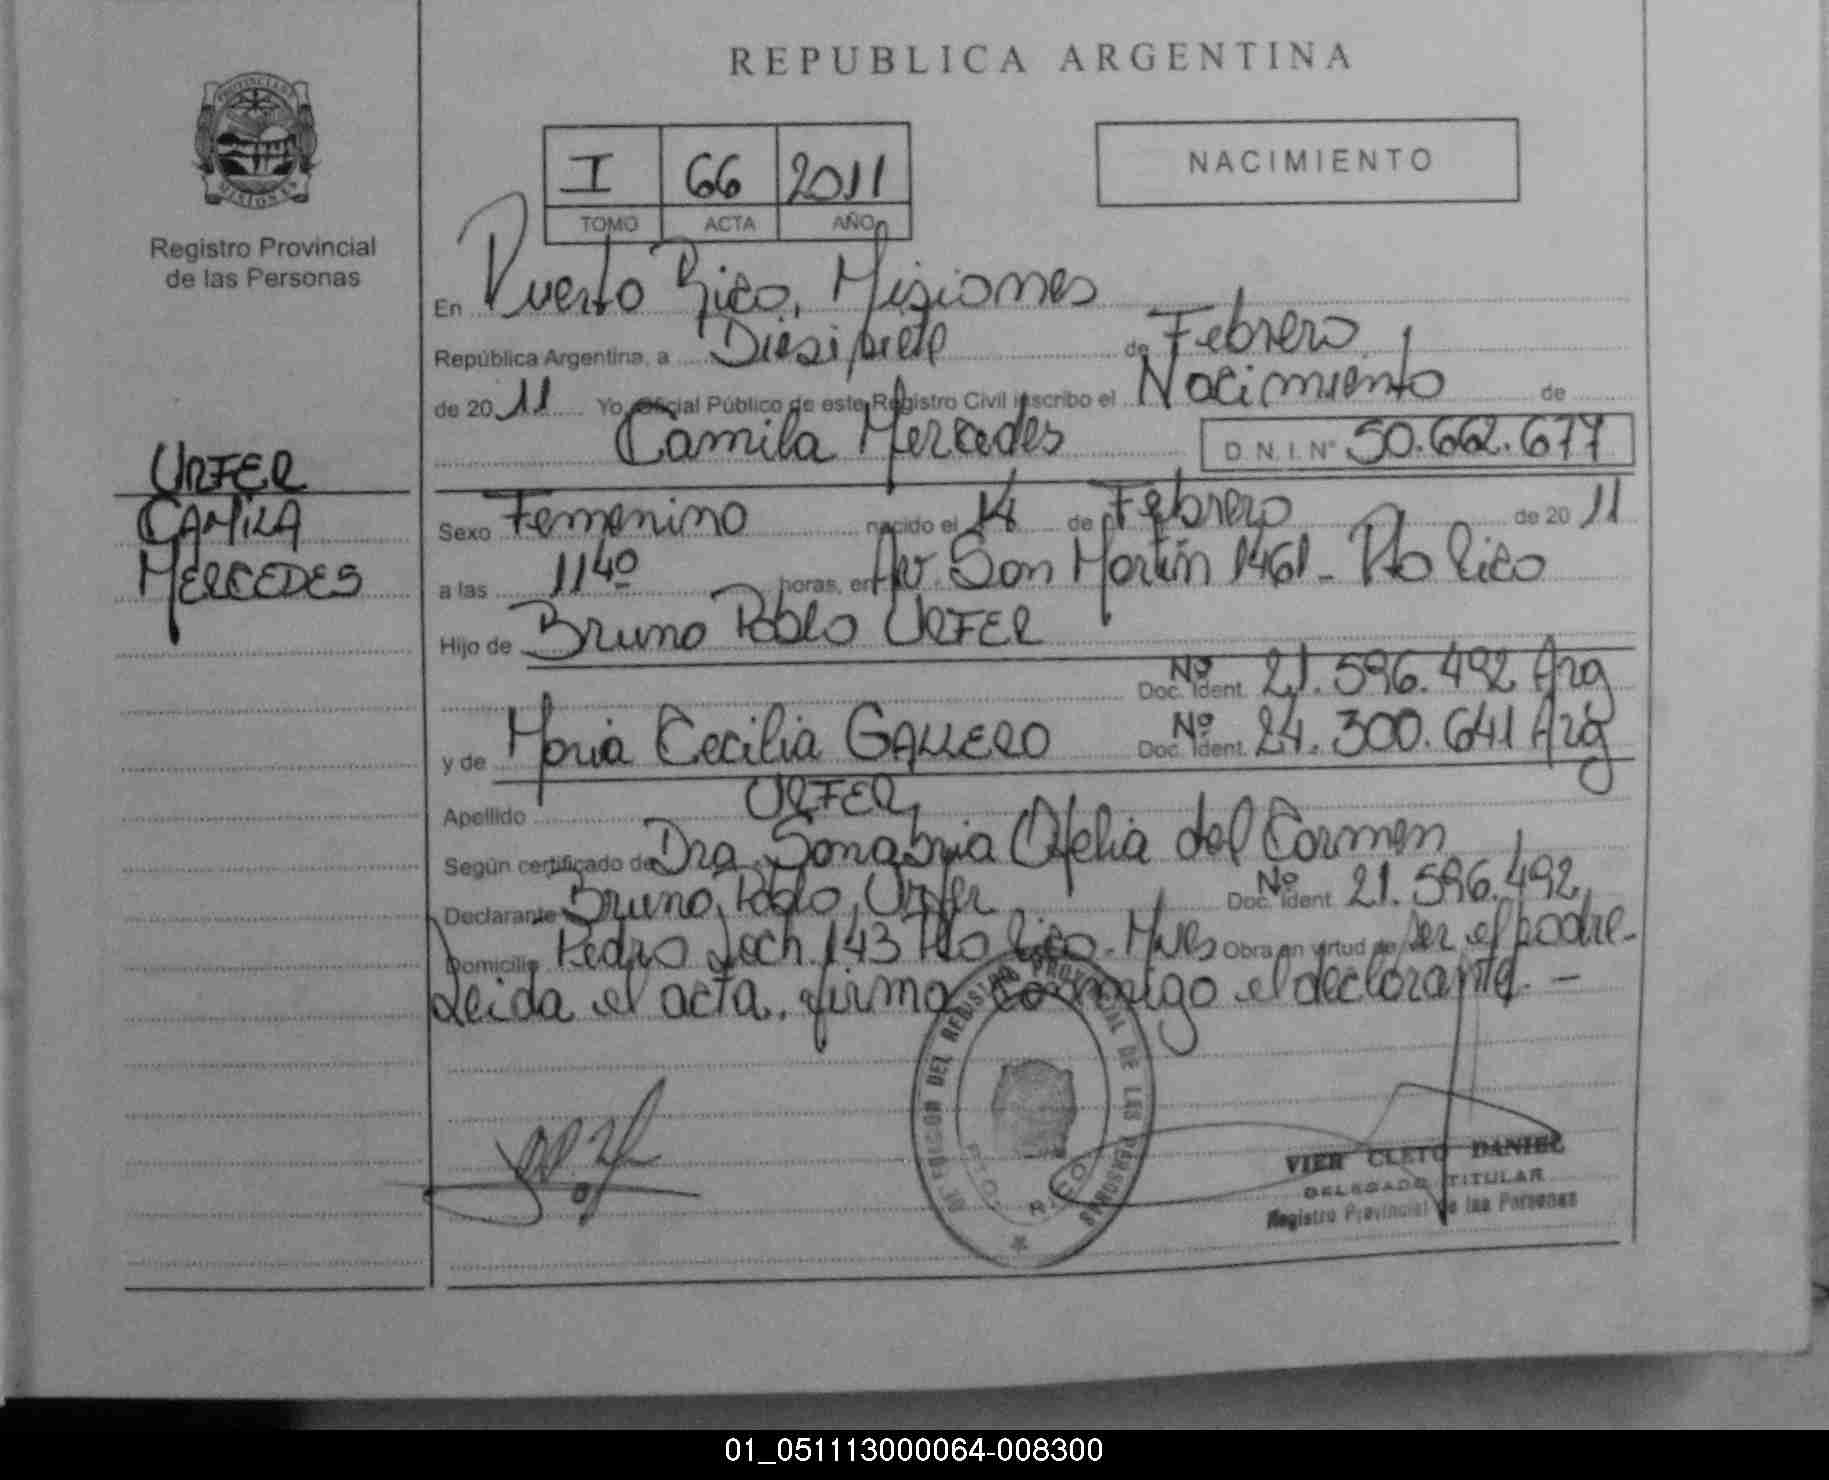 REPUBLICA ARGENTINA
PROVINCIA DE
MISIONES
Registro Provincial
de las Personas
I 66 2011
TOMO ACTA AÑO
NACIMIENTO
En Puerto Rico, Misiones
República Argentina, a Diesisiete de Febrero
de 20 11 Yo, Oficial Público de este Registro Civil inscribo el Nacimiento de
Camila Mercedes D.N.I. Nº 50.662.677
URFER
CAMILA
MERCEDES
Sexo Femenino nacido el 14 de Febrero de 20 11
a las 1140 horas, en Av. San Martín 1461 - Pto Rico
Hijo de Bruno Pablo URFER
Nº Doc. Ident. 21.596.492 Arg
y de Maria Cecilia GALLERO Nº Doc. Ident. 24.300.641 Arg
Apellido URFER
Según certificado de Dra. Sanabria Ofelia del Carmen
Declarante Bruno Pablo Urfer Nº Doc. Ident. 21.596.492
Domicilio Pedro 143 Pto Rico - Mnes Obra en virtud de ser el padre.-
Leida el acta, firma conmigo el declarante. -
DEL REGISTRO PROVINCIAL DE LAS PERSONAS
PTO. RICO
VIER CLETO DANIEL
DELEGADO TITULAR
Registro Provincial de las Personas
01_051113000064-008300